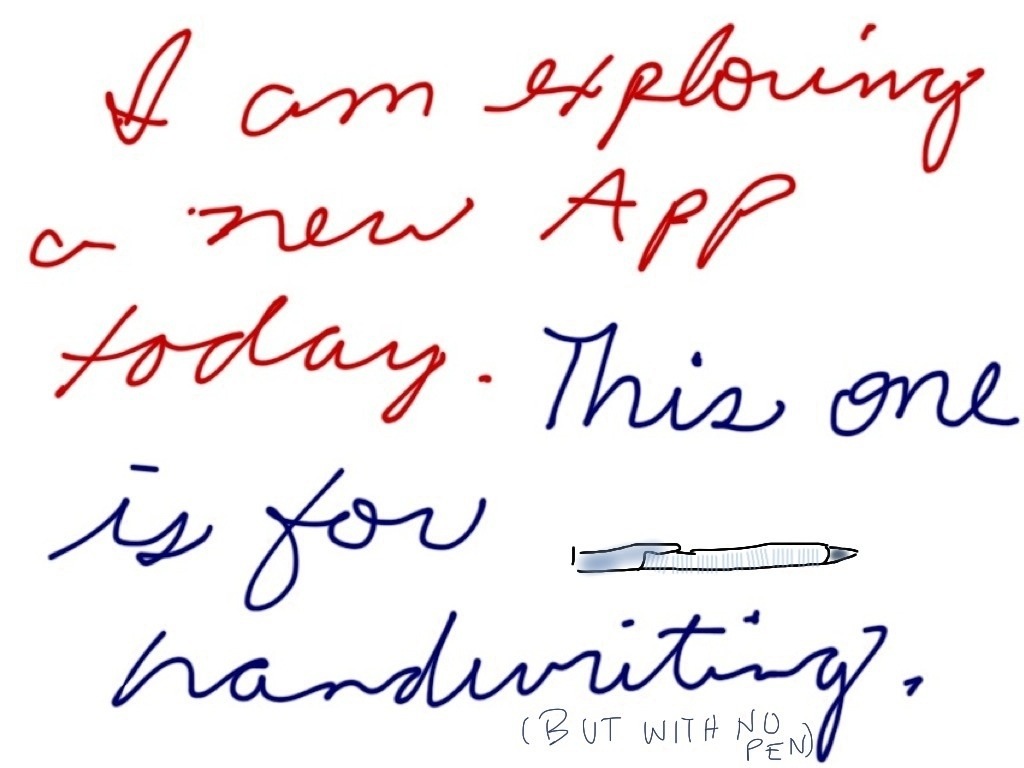 I am exploring
a new App
today. This one
is for
handwriting.
(BUT WITH NO
PEN)